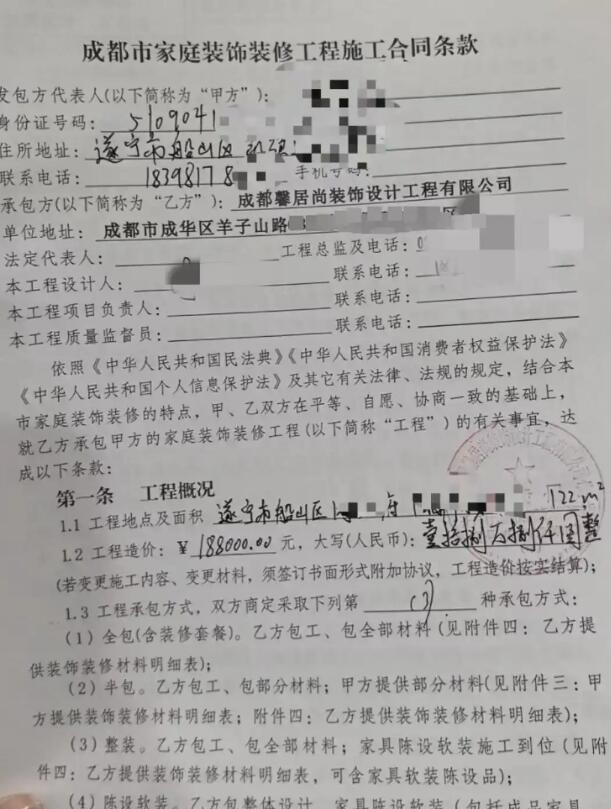 成都市家庭装饰装修工程施工合同条款
发包方代表人(以下简称为“甲方”):
身份证号码: 5109041
住所地址: 遂宁市船山区
联系电话: 18398178 手机号码:
承包方(以下简称为“乙方”): 成都馨居尚装饰设计工程有限公司
单位地址: 成都市成华区羊子山路
法定代表人: 工程总监及电话:
本工程设计人: 联系电话:
本工程项目负责人: 联系电话:
本工程质量监督员: 联系电话:
依照《中华人民共和国民法典》《中华人民共和国消费者权益保护法》
《中华人民共和国个人信息保护法》及其它有关法律、法规的规定,结合本
市家庭装饰装修的特点,甲、乙双方在平等、自愿、协商一致的基础上,
就乙方承包甲方的家庭装饰装修工程(以下简称“工程”)的有关事宜,达
成以下条款:
第一条 工程概况
1.1 工程地点及面积 遂宁市船山区 122m²
1.2 工程造价: ¥ 188000.00 元, 大写(人民币): 壹拾捌万捌仟圆整
(若变更施工内容、变更材料,须签订书面形式附加协议,工程造价按实结算);
1.3 工程承包方式,双方商定采取下列第 (1) 种承包方式:
(1) 全包(含装修套餐)。乙方包工、包全部材料(见附件四:乙方提
供装饰装修材料明细表);
(2) 半包。乙方包工、包部分材料;甲方提供部分材料(见附件三:甲
方提供装饰装修材料明细表;附件四:乙方提供装饰装修材料明细表);
(3) 整装。乙方包工、包全部材料;家具陈设软装施工到位(见附
件四:乙方提供装饰装修材料明细表,可含家具软装陈设品);
(4) 陈设软装。乙方包整体设计、家具陈设软装(包括成品家具